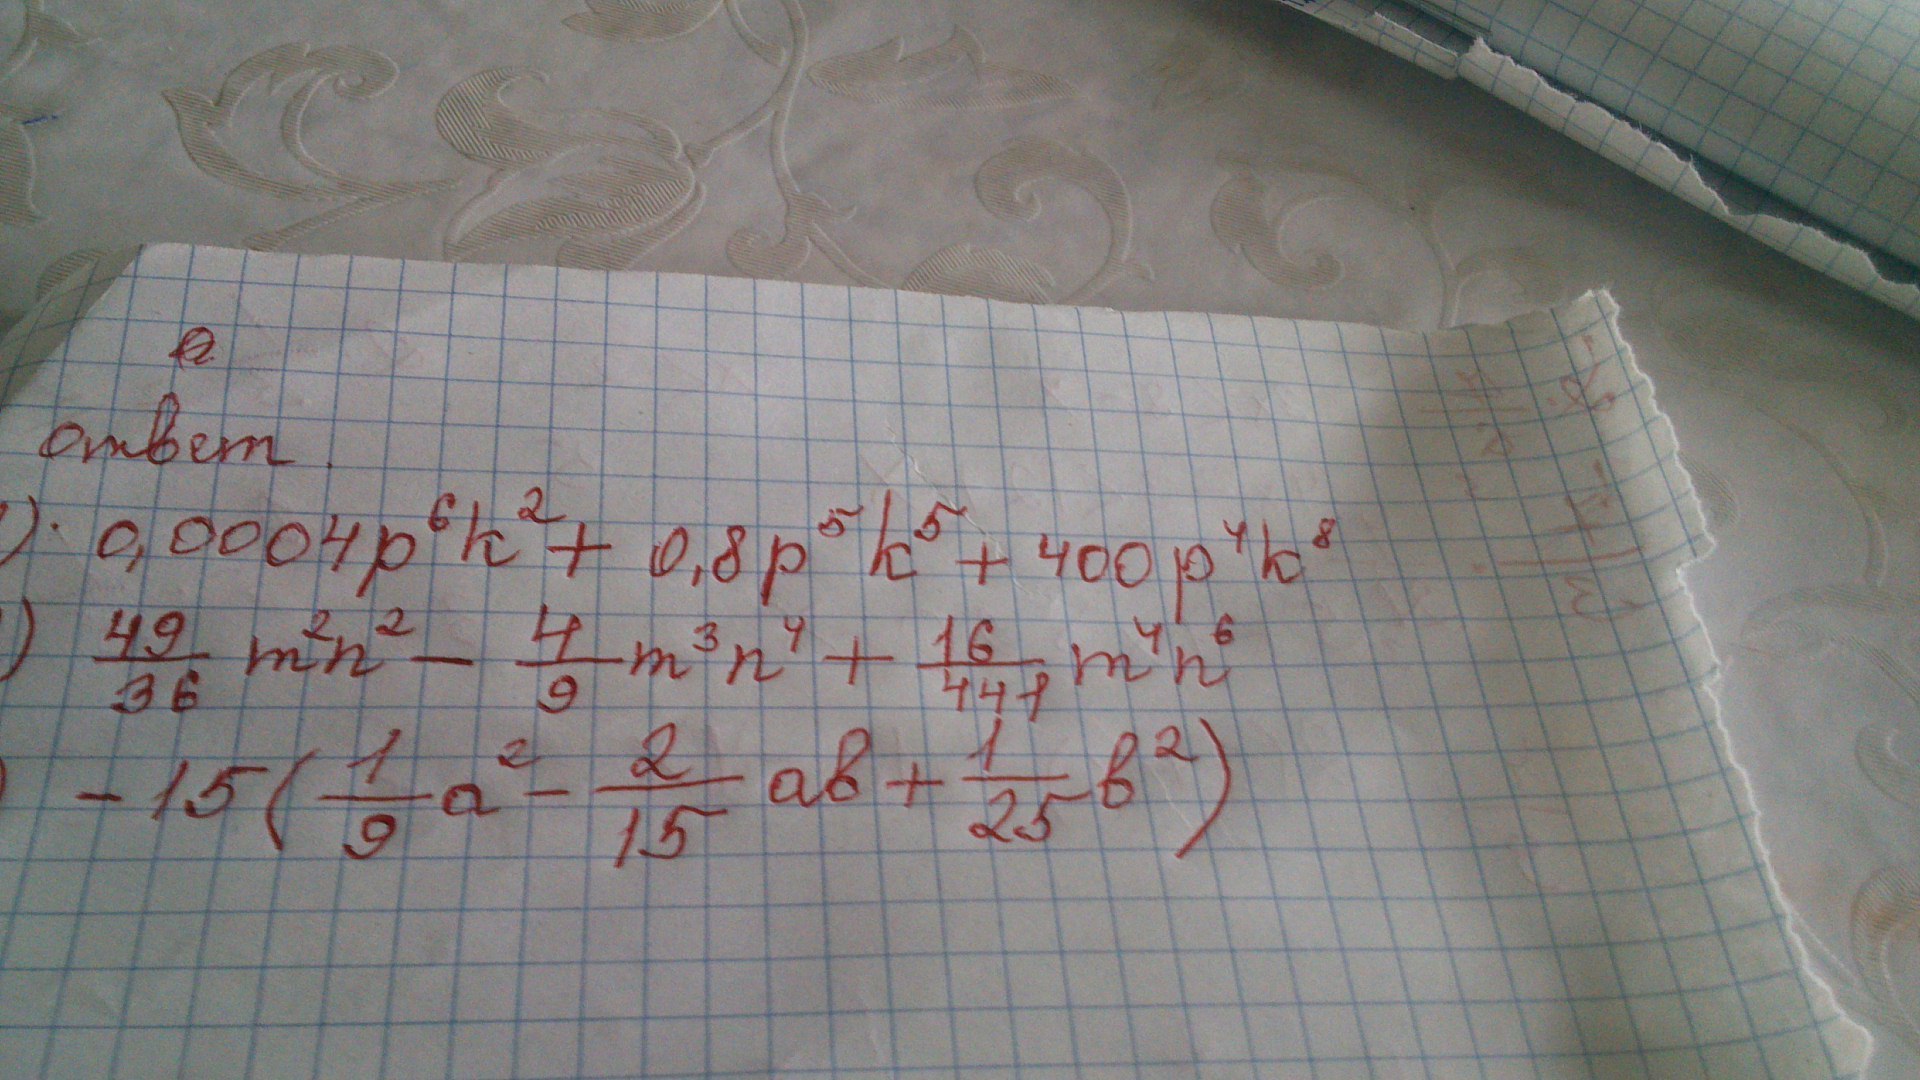 ответ.
). 0,0004p⁶k² + 0,8p⁵k⁵ + 400p⁴k⁸
) 49/36 m²n² - 4/9 m³n⁴ + 16/441 m⁴n⁶
) -15(1/9 a² - 2/15 ab + 1/25 b²)